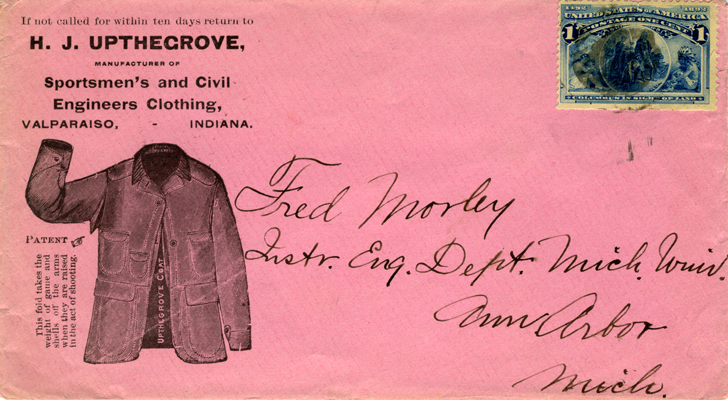 If not called for within ten days return to
H. J. UPTHEGROVE,
MANUFACTURER OF
Sportsmen's and Civil
Engineers Clothing,
VALPARAISO, - INDIANA.
1492 1892
UNITED STATES OF AMERICA
1 POSTAGE ONE CENT 1
COLUMBUS IN SIGHT OF LAND
PATENT ☞
This fold takes the
weight of game and
shells off the arms
when they are raised
in the act of shooting.
UPTHEGROVE COAT
Fred Morley
Instr. Eng. Dept. Mich. Univ.
Ann Arbor
Mich.